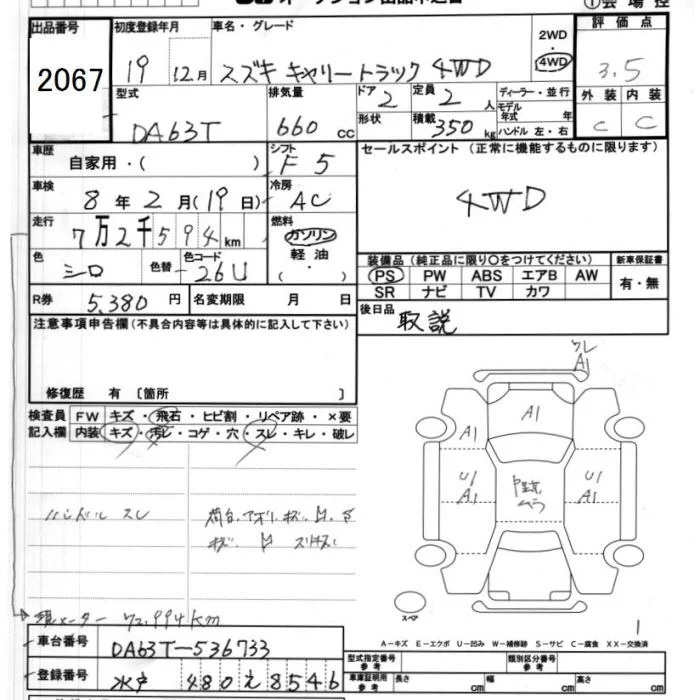 ①会場控
出品番号 初度登録年月 車名・グレード 評価点
2067 19 12月 スズキ キャリートラック 4WD 2WD・4WD 3.5
型式 排気量 ドア 定員 ディーラー・並行 外装 内装
DA63T 660 cc 2 2人 モデル年式 年 C C
形状 積載 350kg ハンドル 左・右
車歴 シフト セールスポイント(正常に機能するものに限ります)
自家用・( ) F5
車検 冷房 4WD
8年2月(19日) AC
走行 燃料
7万2千594km ガソリン
色 色替 色コード 軽油 装備品(純正品に限り○をつけてください) 新車保証書
シロ 26U ( ・ ) PS PW ABS エアB AW 有・無
SR ナビ TV カワ
R券 5,380円 名変期限 月 日 後日品
取説
注意事項申告欄(不具合内容等は具体的に記入して下さい)
修復歴 有 〔箇所 〕
検査員 FW キズ・飛石・ヒビ割・リペア跡・×要
記入欄 内装 キズ・汚レ・コゲ・穴・スレ・キレ・破レ
A1
A1
A1
U1 A1
U1 A1
ハンドル スレ
スペア
現メーター 72,994km
1
A-キズ E-エクボ U-凹み W-補修跡 S-サビ C-腐食 XX-交換済
車台番号 DA63T-536733
型式指定番号 参考 類別区分番号 参考
登録番号 水戸 480 え 8546
車庫証明用 参考 長さ cm 幅 cm 高さ cm